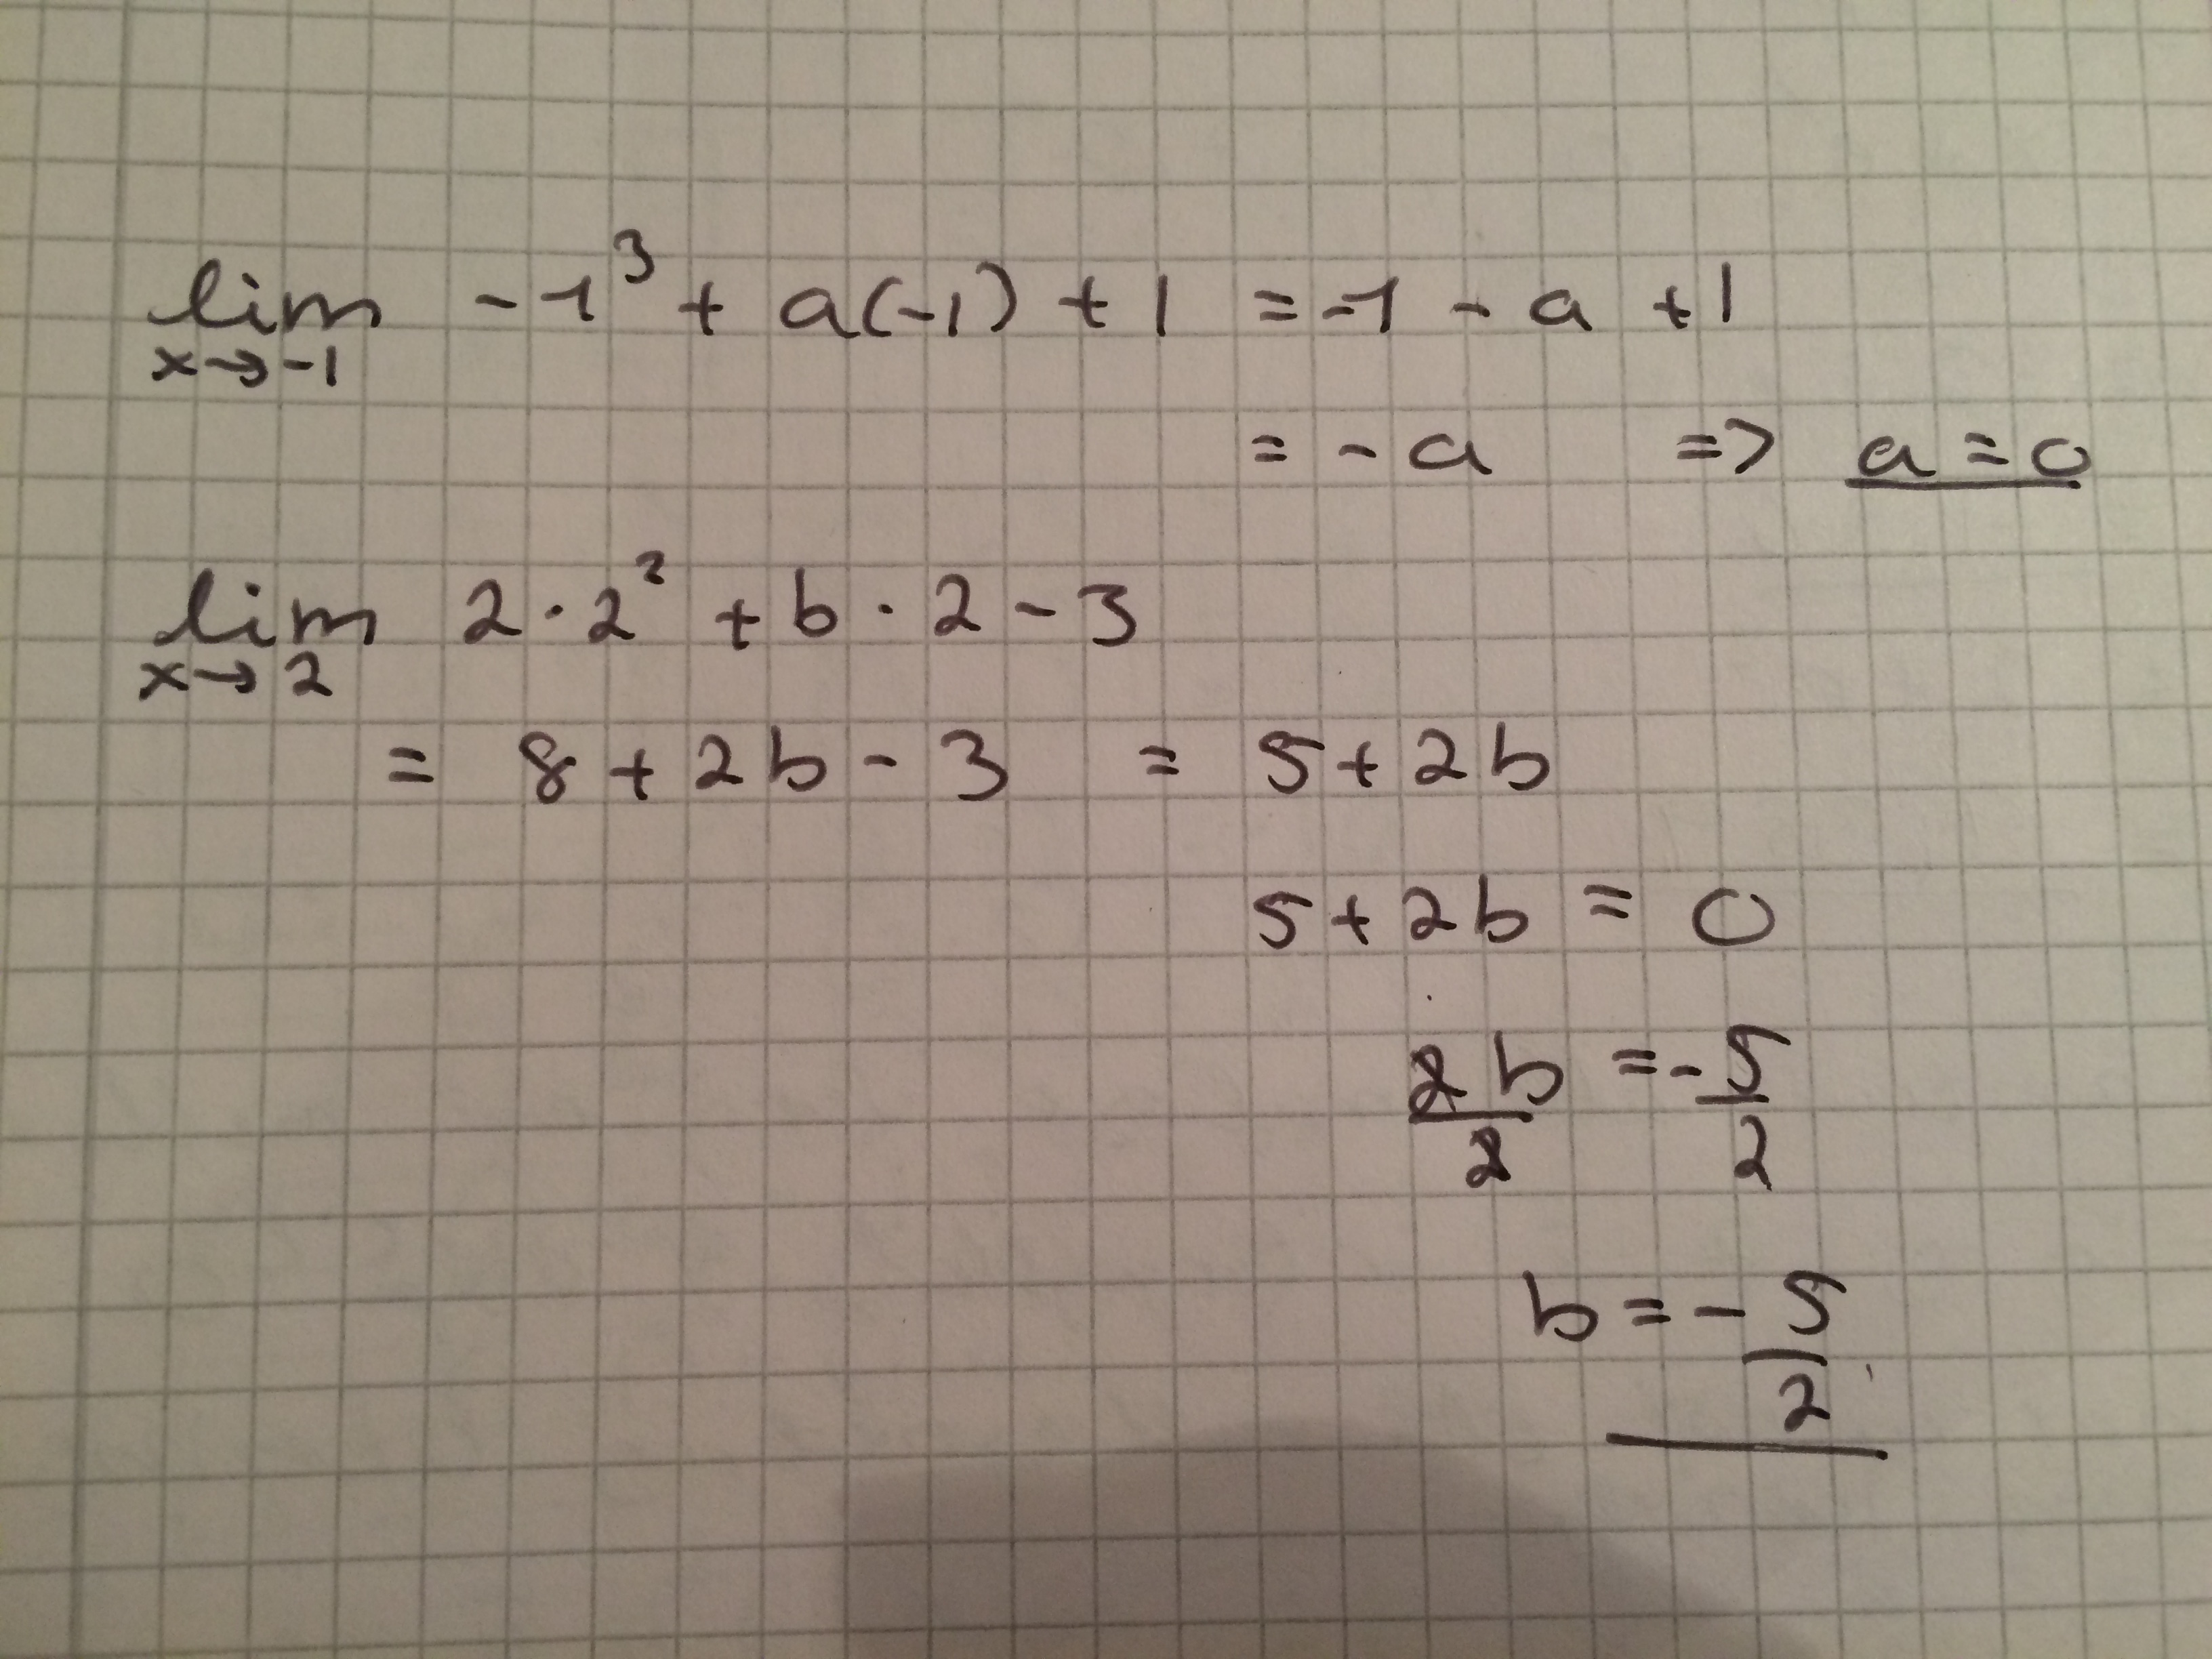 lim -1³ + a(-1) + 1 = -1 - a + 1
x→-1
= -a => a = 0
lim 2·2² + b·2 - 3
x→2
= 8 + 2b - 3 = 5 + 2b
5 + 2b = 0
2b/2 = -5/2
b = -5/2